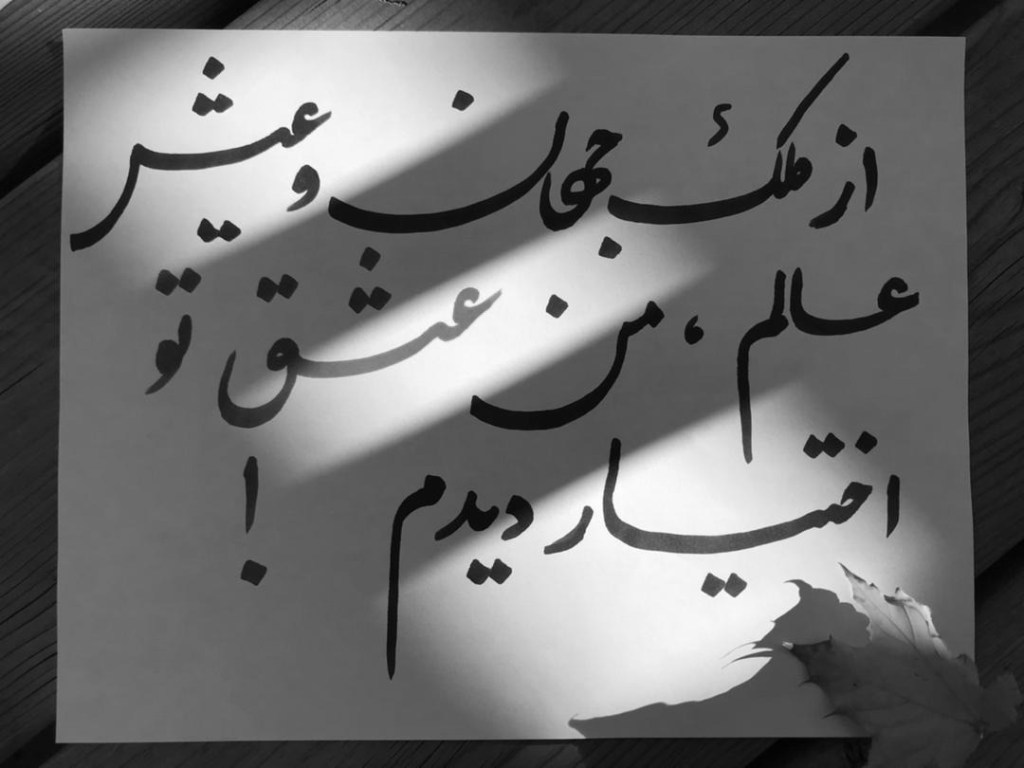 از ملک جهان و عیش
عالم ، من عشق تو
اختیار دیدم !